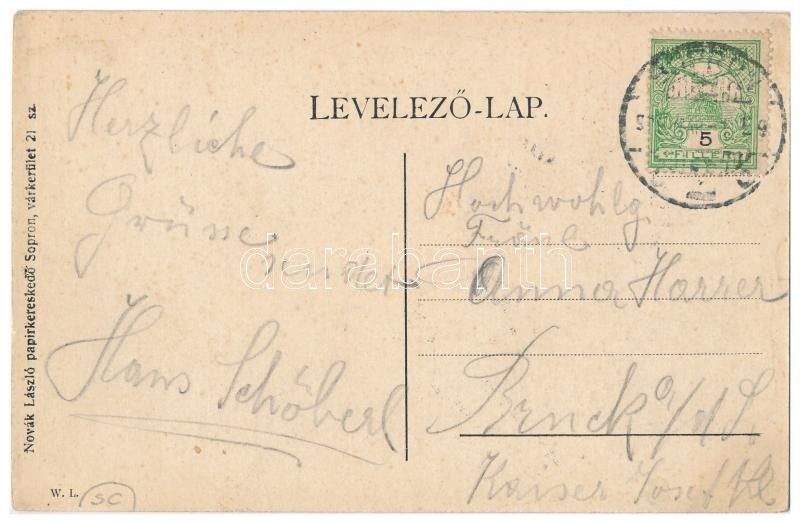 LEVELEZŐ-LAP.
Herzliche
Grüsse
sendet
Hans Schöberl
Hochwohlg
Fräul
Anna Harrer
Bruck a/d L.
Kaiser Josef
5
FILLÉR
Novák László papirkereskedő Sopron, várkerület 21 sz.
W. L.
SC
darabanth